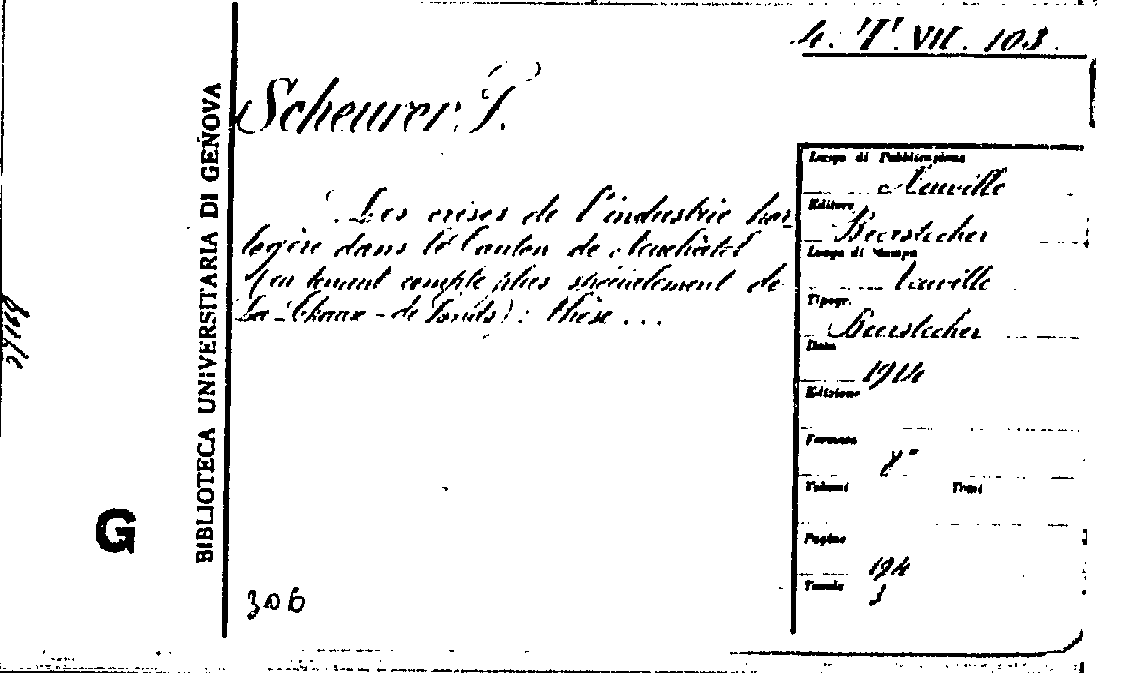 4. T. VII. 103.
Scheurer, F.
Les crises de l'industrie hor-
logère dans le Canton de Neuchâtel
(en tenant compte plus spécialement de
La-Chaux-de-Fonds): thèse...
BIBLIOTECA UNIVERSITARIA DI GENOVA
G
306
Luogo di Pubblicazione
Neuville
Editore
Beerstecher
Luogo di Stampa
Neuville
Tipogr.
Beerstecher
Data
1914
Edizione
Formato
8°
Volumi Tomi
Pagine
194
Tavole
3